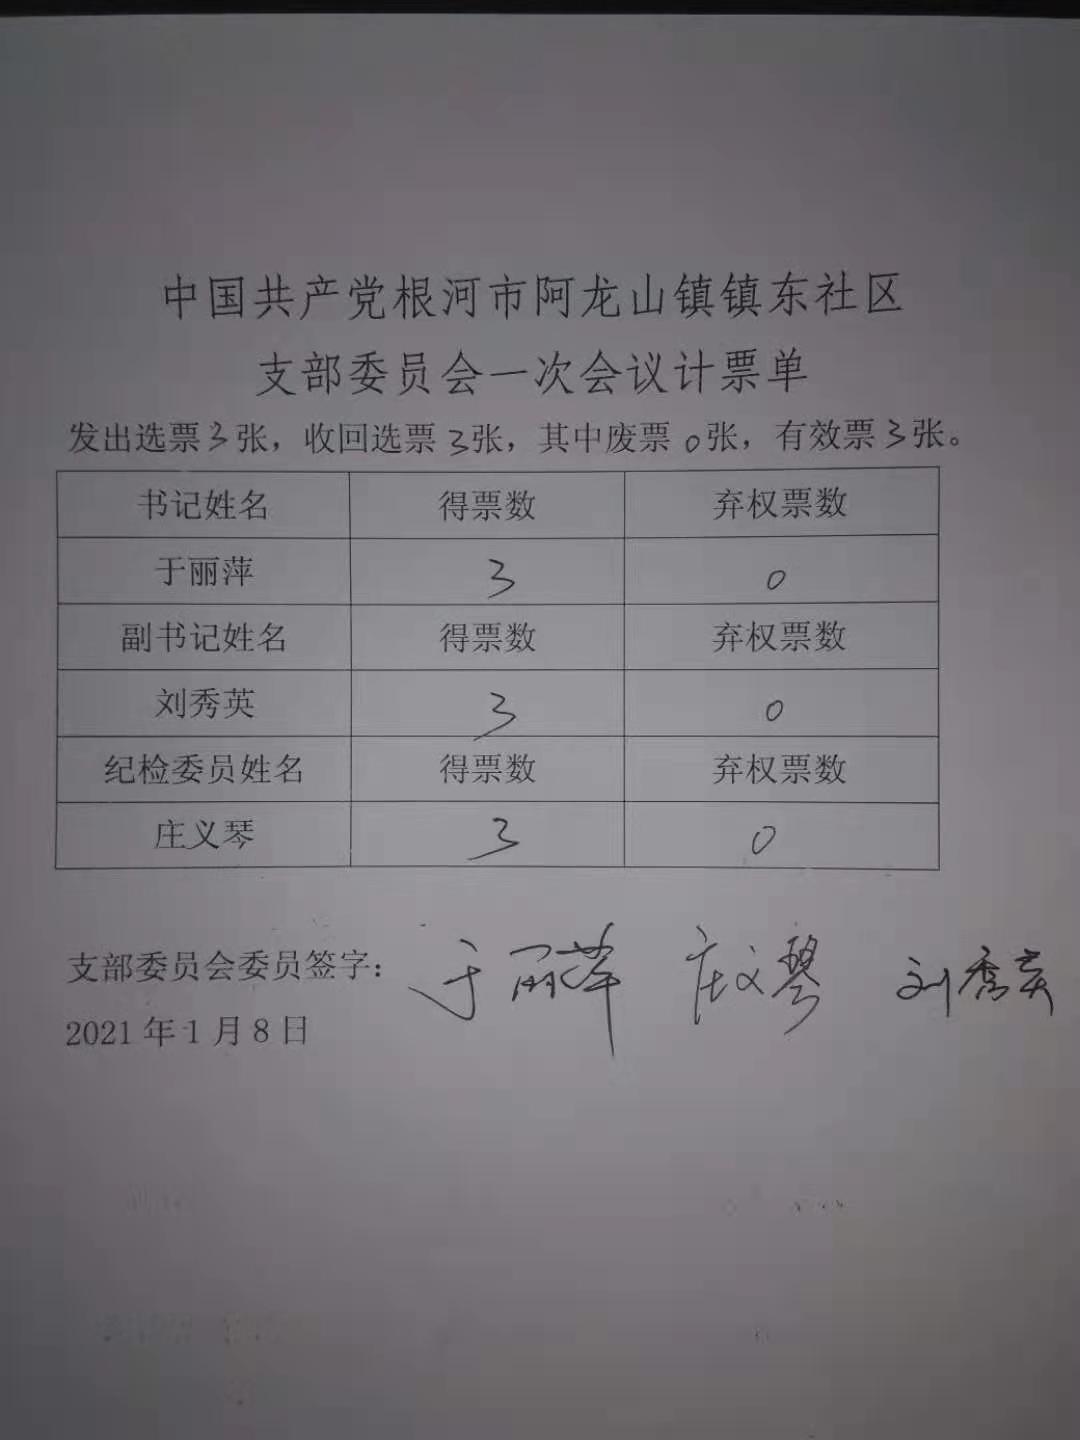 中国共产党根河市阿龙山镇镇东社区
支部委员会一次会议计票单
发出选票3张，收回选票3张，其中废票0张，有效票3张。
书记姓名 得票数 弃权票数
于丽萍 3 0
副书记姓名 得票数 弃权票数
刘秀英 3 0
纪检委员姓名 得票数 弃权票数
庄义琴 3 0
支部委员会委员签字： 于丽萍 庄义琴 刘秀英
2021年1月8日